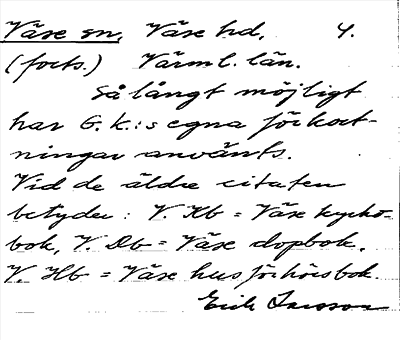 Väse sn, Väse hd, 4.
(forts.) Värml. län.
Så långt möjligt
har G. K.:s egna förkort-
ningar använts.
Vid de äldre citaten
betyder: V. Kb = Väse kyrko-
bok, V. Db = Väse dopbok.
V. Hb = Väse husförhörsbok
Erik Larsson